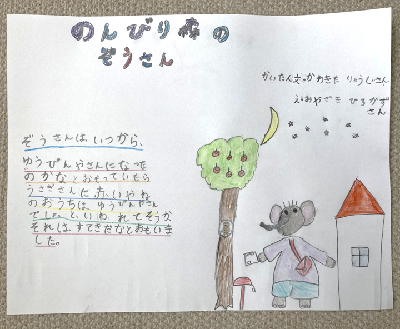 のんびり森の
ぞうさん
かいた人文。かわきた りょうじさん
え。おやざき ひろかず
さん
ぞうさんは、いつから、
ゆうびんやさんになった
のかなとおもっていたら
うさぎさんに、赤いやね
のおうちは、ゆうびんやさん
でしょ。といわれてそうか
それは、すてきだなとおもいま
した。